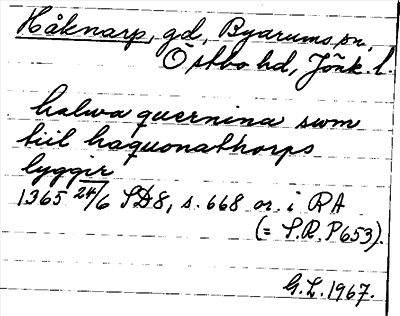 Håknarp, gd, Byarums sn,
Östbo hd, Jönk. l.
halwa quernina swm
tiil haquonathorps
lyggir
1365 24/6 SD8, s. 668 or. i RA
(= S.R.P 653).
G.L. 1967.